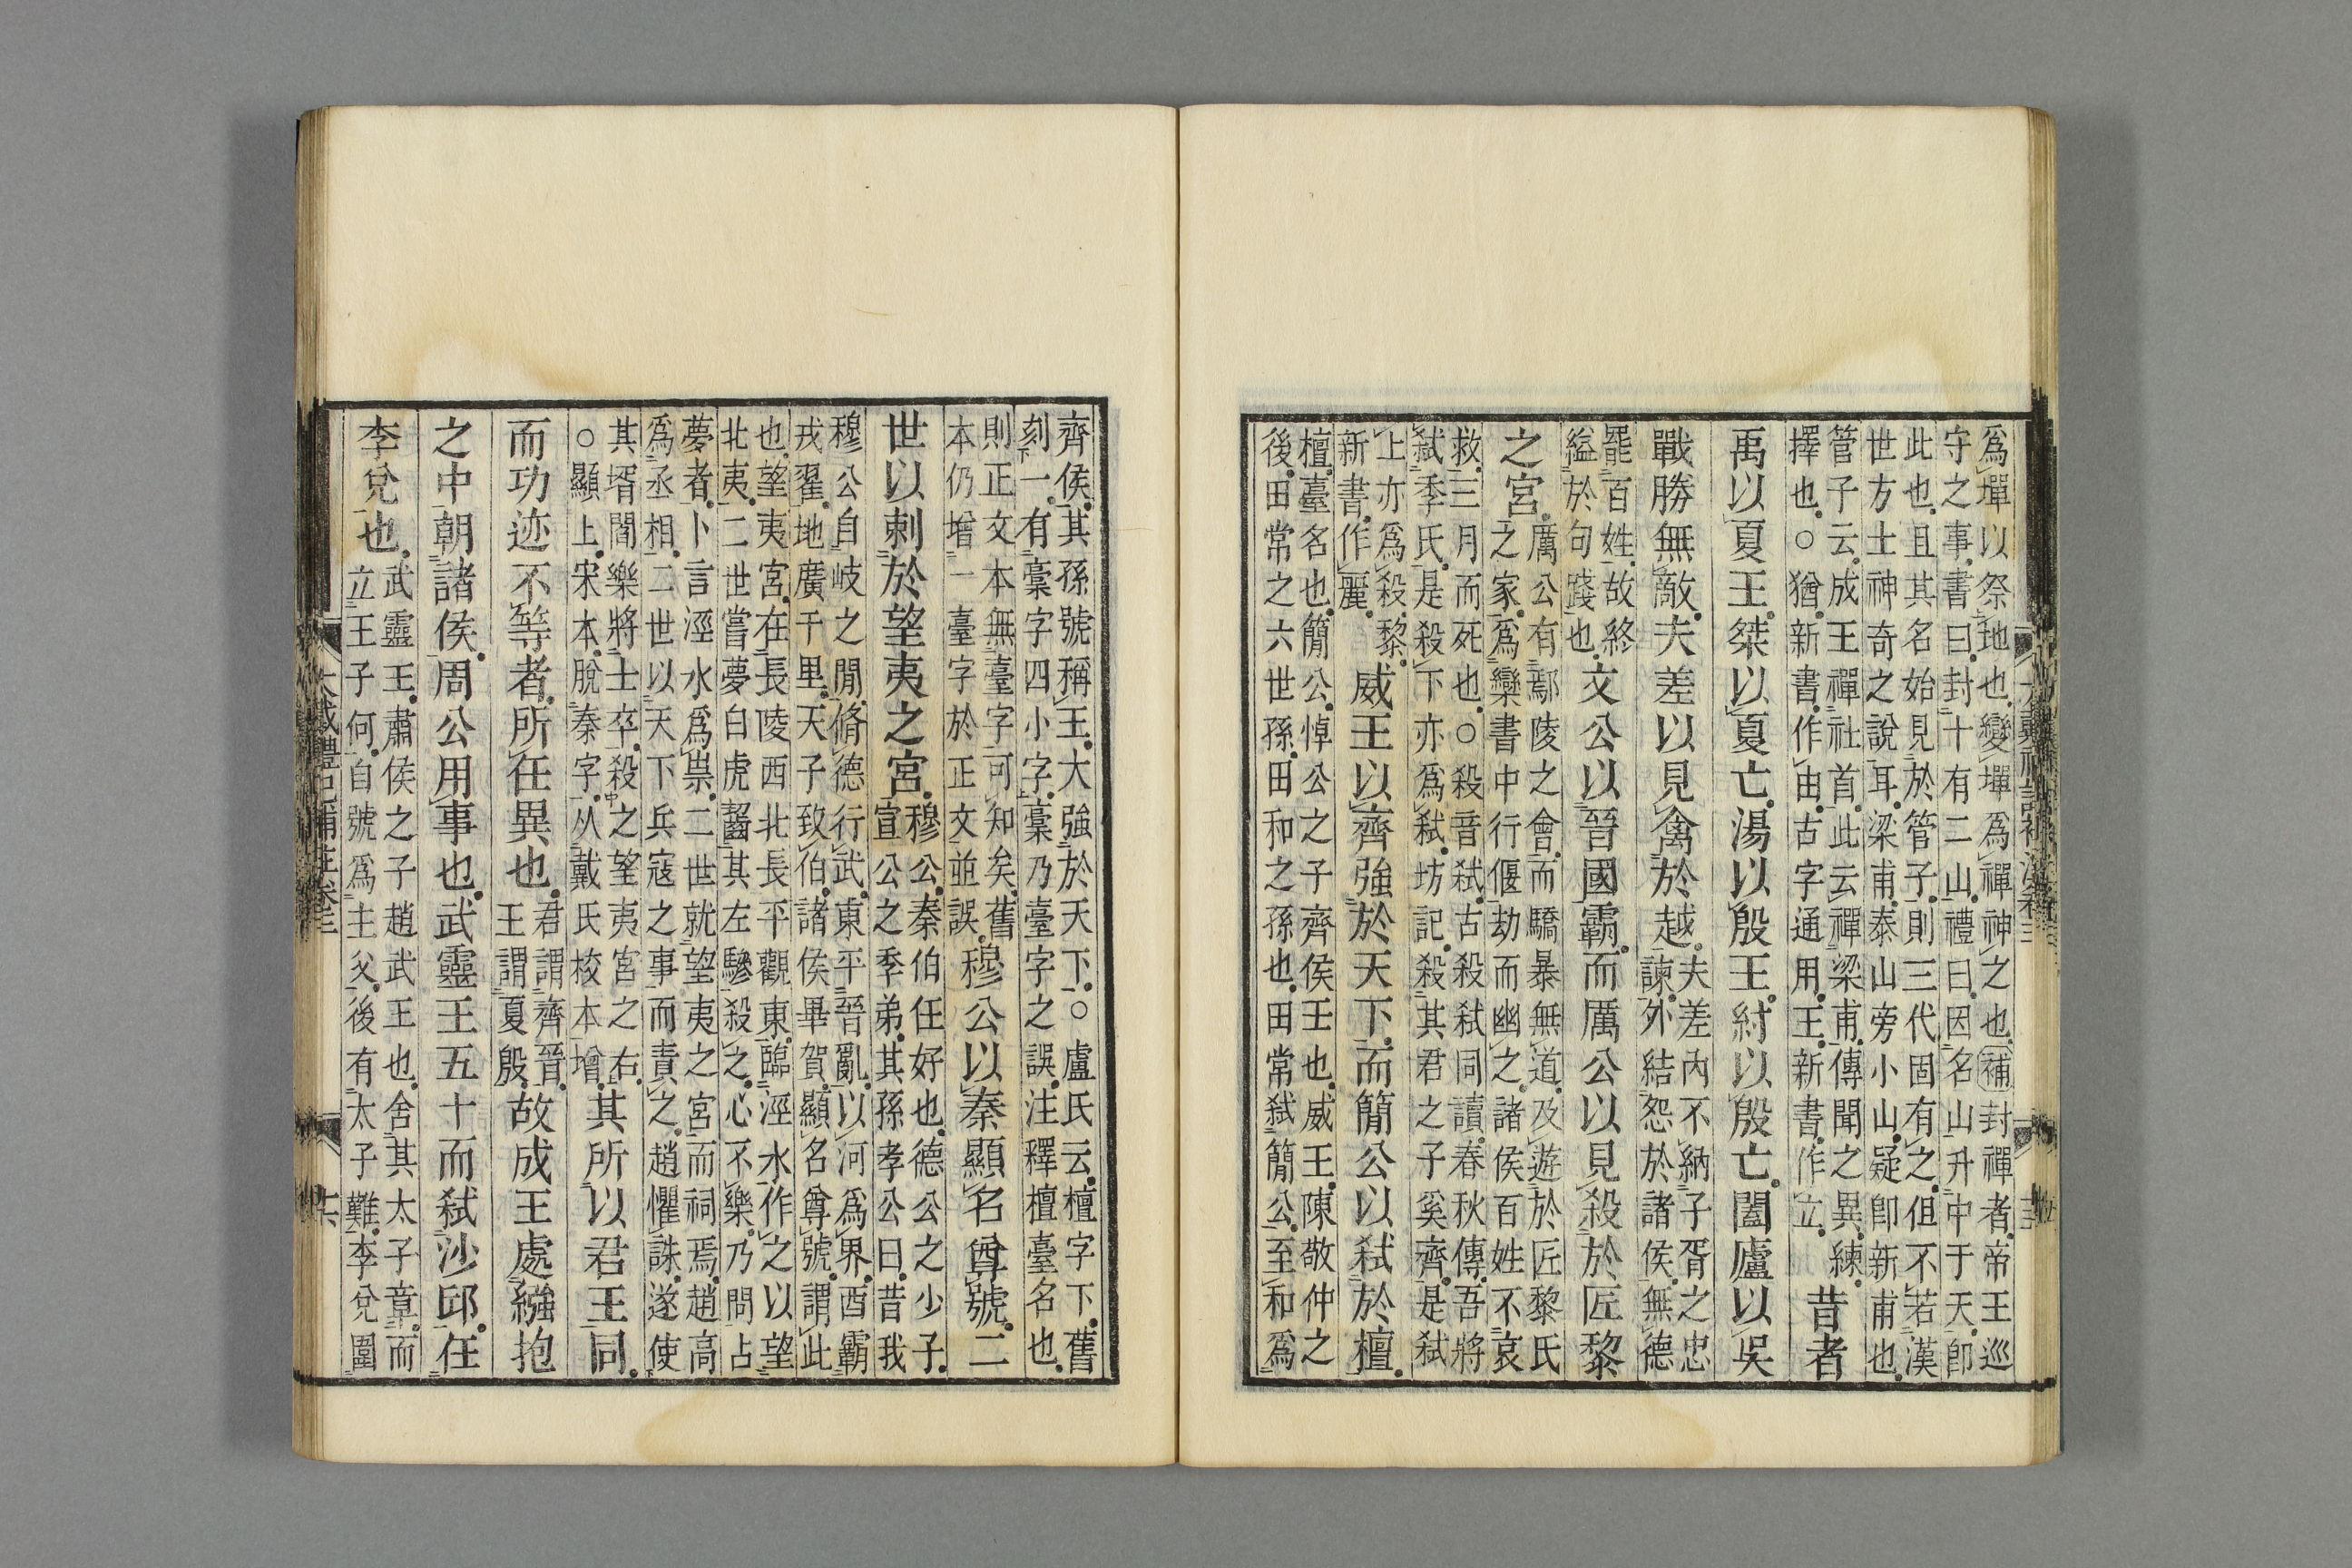 爲墠以祭地也變墠爲禪神之也補封禪者帝王巡
守之事書曰封十有二山禮曰因名山升中于天卽
此也且其名始見於管子則三代固有之但不若漢
世方士神奇之說耳梁甫泰山旁小山疑卽新甫也
管子云成王禪社首此云禪梁甫傳聞之異練
擇也○猶新書作由古字通用王新書作立
昔者
禹以夏王桀以夏亡湯以殷王紂以殷亡闔廬以吳
戰勝無敵夫差以見禽於越
夫差內不納子胥之忠
諫外結怨於諸侯無德
罷百姓故終
縊於句踐也
文公以晉國霸而厲公以見殺於匠黎
之宮
厲公有鄢陵之會而驕暴無道及遊於匠黎氏
之家爲欒書中行偃劫而幽之諸侯百姓不哀
救三月而死也○殺音弒古殺弒同讀春秋傳吾將
弒季氏是殺下亦爲弒坊記殺其君之子奚齊是弒
上亦爲殺黎
新書作麗
威王以齊強於天下而簡公以弒於檀
檀臺名也簡公悼公之子齊侯壬也威王陳敬仲之
後田常之六世孫田和之孫也田常弒簡公至和爲
齊侯其孫號稱王大強於天下○盧氏云檀字下舊
刻一有臺字四小字臺乃臺字之誤注釋檀臺名也
則正文本無臺字可知矣舊
本仍增一臺字於正文並誤
穆公以秦顯名尊號二
世以刺於望夷之宮
穆公秦伯任好也德公之少子
宣公之季弟其孫孝公曰昔我
穆公自岐之閒脩德行武東平晉亂以河爲界酉霸
戎翟地廣千里天子致伯諸侯畢賀顯名尊號謂此
也望夷宮在長陵西北長平觀東臨涇水作之以望
北夷二世嘗夢白虎齧其左驂殺之心不樂乃問占
夢者卜言涇水爲祟二世就望夷之宮而祠焉趙高
爲丞相二世以天下兵寇之事而責之趙懼誅遂使
其壻閻樂將士卒殺之望夷宮之右
○顯上宋本脫秦字从戴氏校本增
其所以君王同
而功迹不等者所任異也
君謂齊晉
王謂夏殷
故成王處繈抱
之中朝諸侯周公用事也武靈王五十而弒沙邱任
李兌也
武靈王肅侯之子趙武王也舍其太子章而
立王子何自號爲主父後有太子難李兌圍
大戴禮記補注卷三
十六